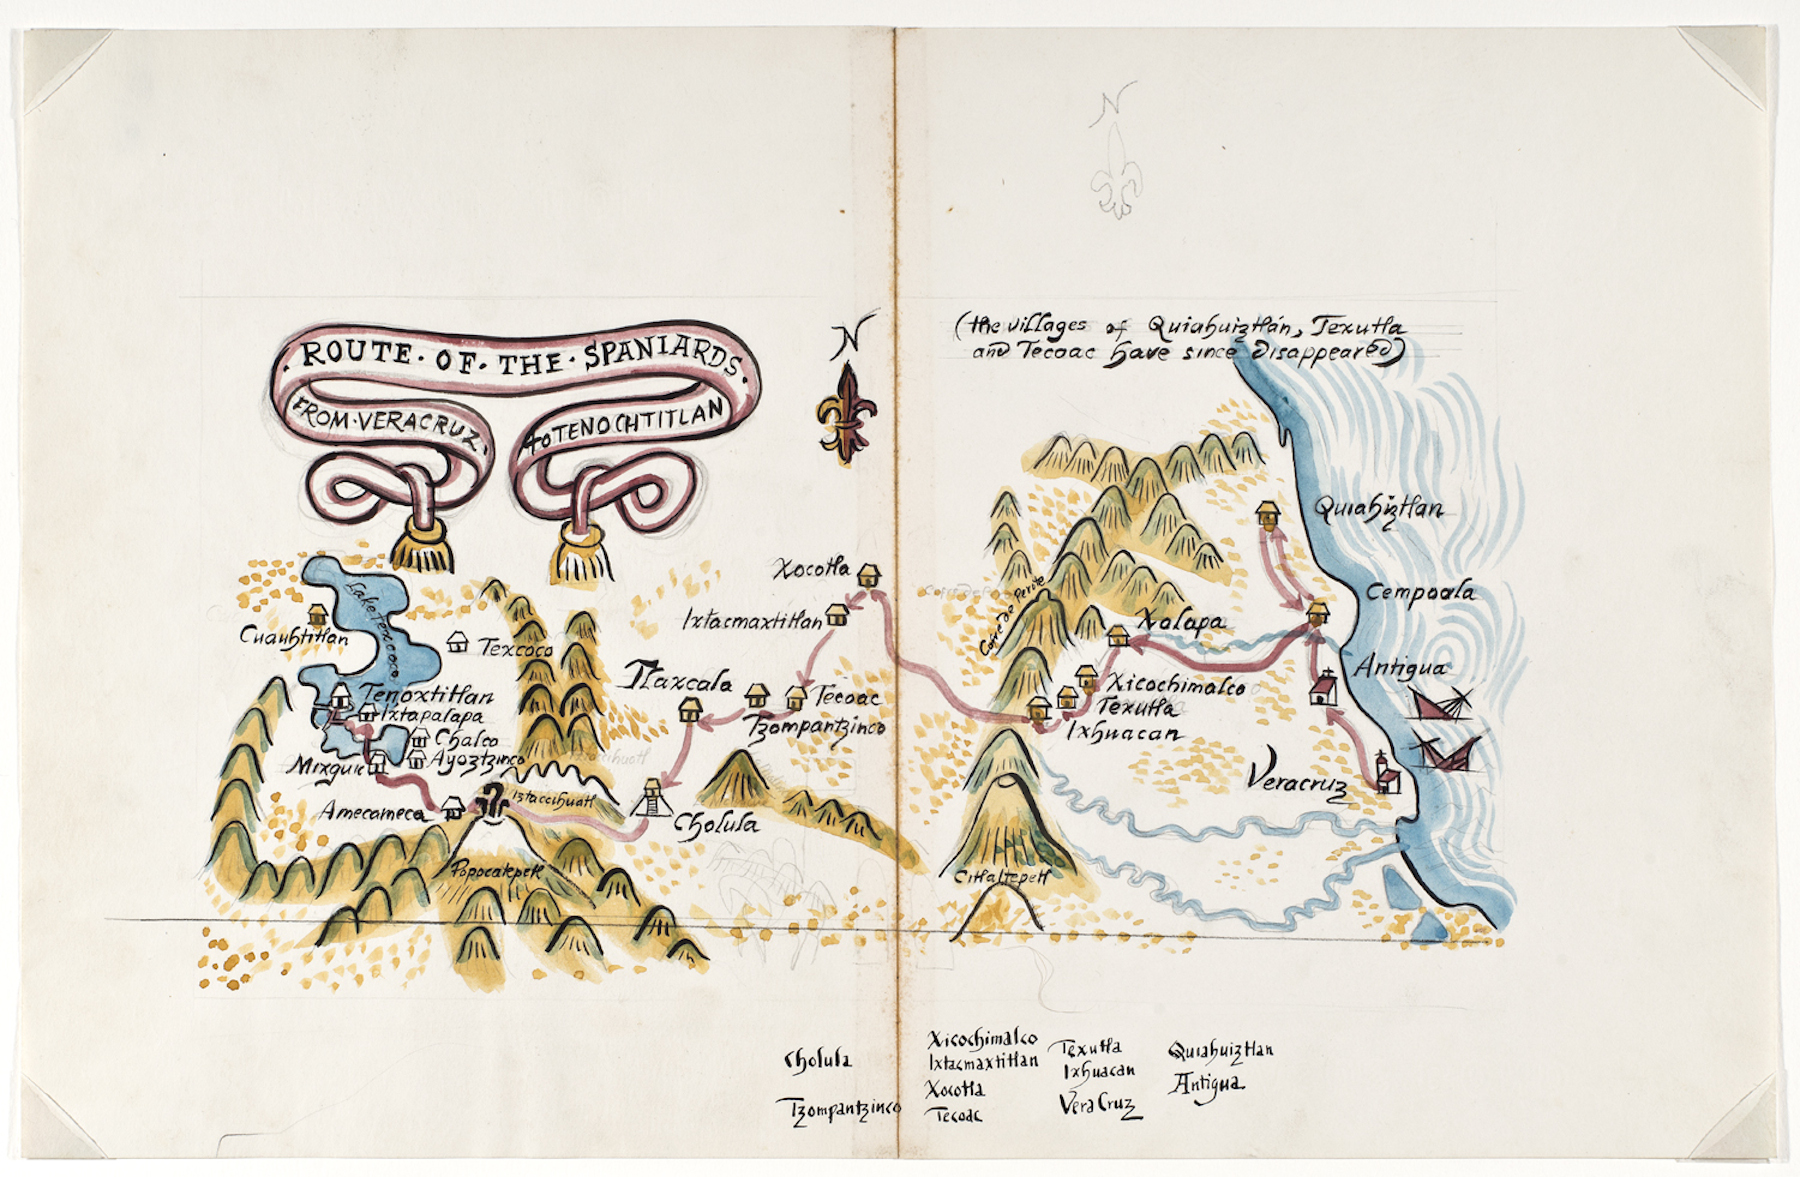 N
ROUTE · OF · THE · SPANIARDS ·
FROM · VERACRUZ ·
to TENOCHTITLAN
N
(the villages of Quiahuiztlán, Texutla
and Tecoac have since disappeared)
Quiahiztlan
Cempoala
Xalapa
Antigua
Veracruz
Xicochimalco
Texutla
Ixhuacan
Cofre de Perote
Citlaltepetl
Xocotla
Ixtacmaxtitlan
Tecoac
Tzompantzinco
Tlaxcala
Cholula
Iztaccihuatl
Popocatepetl
Amecameca
Lake Texcoco
Cuauhtitlan
Texcoco
Tenoxtitlan
Ixtapalapa
Chalco
Ayoztzinco
Mixquic
Cholula
Tzompantzinco
Xicochimalco
Ixtacmaxtitlan
Xocotla
Tecoac
Texutla
Ixhuacan
Vera Cruz
Quiahuiztlan
Antigua